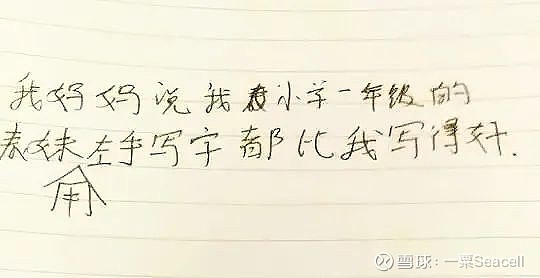 我妈妈说我小学一年级的
表妹左手写字都比我写得好.
用
雪球：一粟Seacell